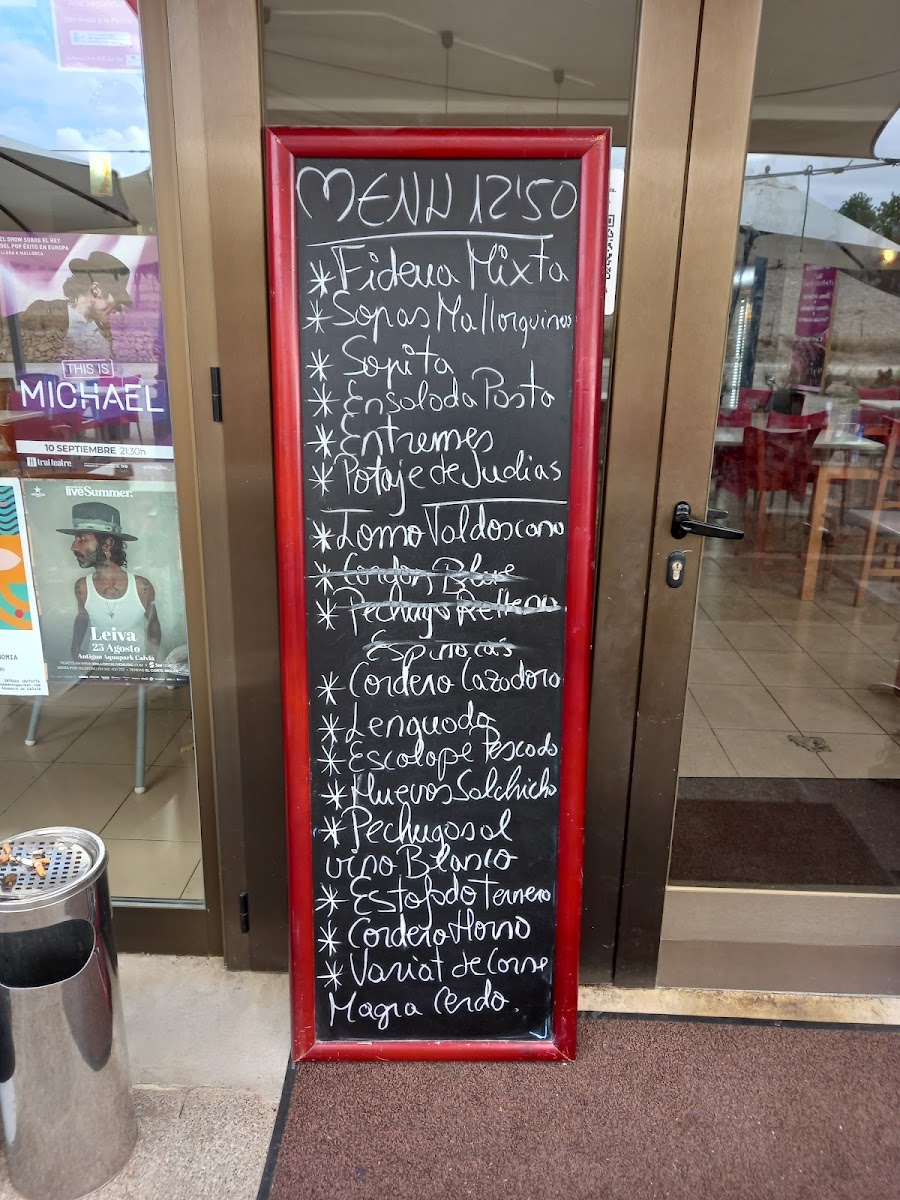 EL SHOW SOBRE EL REY
DEL POP ÉXITO EN EUROPA
LLEGA A MALLORCA
THIS IS
MICHAEL
10 SEPTIEMBRE 21:30h
trui teatre
liveSummer.
Leiva
25 Agosto
Antiguo Aquapark Calvià
MENU 12'50
* Fideua Mixta
* Sopas Mallorquinas
* Sopita
* Ensalada Pasta
* Entremes
* Potaje de Judias
* Lomo Valdoscano
* Cordon Blue
* Pechuga Rellena
Espinacas
* Cordero Cazadora
* Lenguado
* Escalope Pescado
* Huevos Salchicha
* Pechugas al
vino Blanco
* Estofado Ternera
* Cordero Horno
* Variat de Carne
Magra Cerdo.